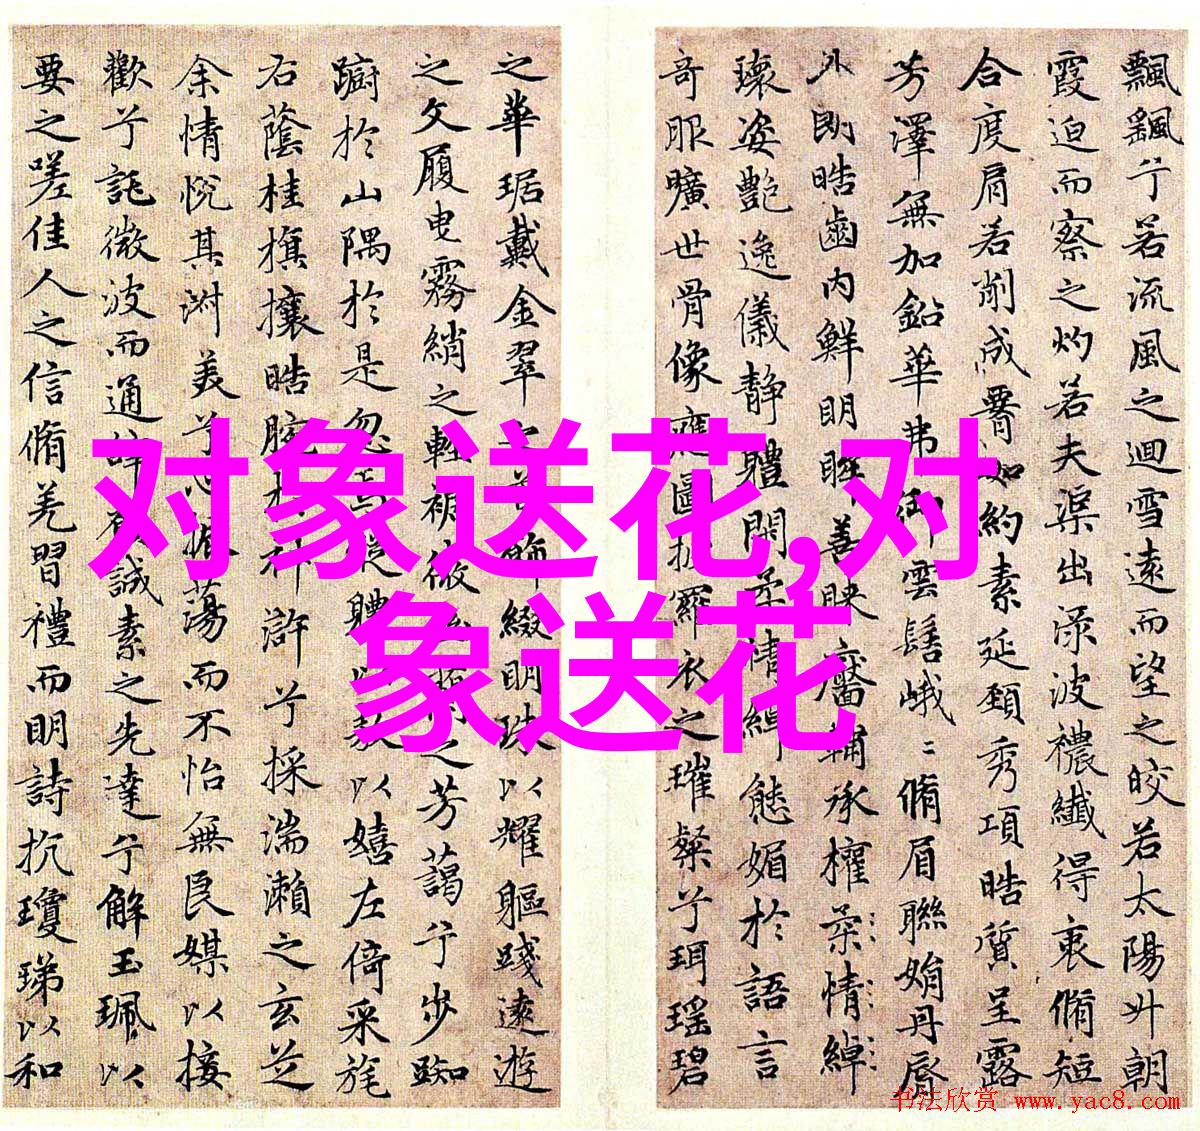 飄飖兮若流風之迴雪遠而望之皎若太陽升朝
霞迫而察之灼若夫渠出渌波穠纖得衷脩短
合度肩若削成腰如約素延頸秀項皓質呈露
芳澤無加鉛華弗御雲髻峨〻脩眉聯娟丹唇
外朗皓齒内鮮明眸善睞靨輔承權柔情綽
瓌姿艷逸儀静體閑柔情綽態媚於語言
奇服曠世骨像應圖披羅衣之璀粲兮珥瑶碧
之華琚戴金翠之首飾綴明珠以耀軀踐遠遊
之文履曳霧綃之輕裾微之芳藹兮步踟
躕於山隅於是忽焉縱體以敖以嬉左倚采旄
右蔭桂旗攘皓腕於神滸兮採湍瀨之玄芝
余情悅其淑美兮心振蕩而不怡無良媒以接
歡兮託微波而通辭誠素之先達兮解玉珮以
要之嗟佳人之信脩羌習禮而明詩抗瓊珶以和
对象送花,对
象送花
书法欣赏 www.yac8.com